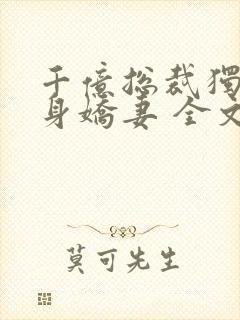 千億總裁獨
身嬌妻 全文
莫可先生